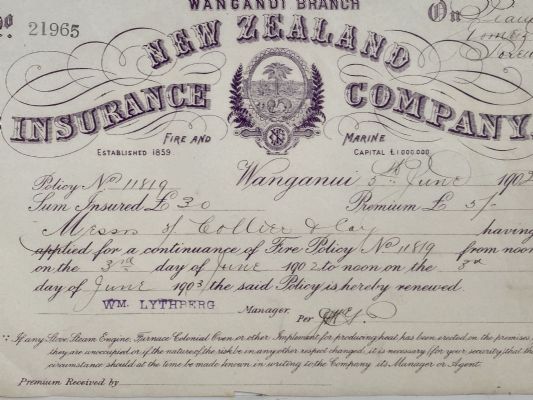 WANGANUI BRANCH
No. 21965
On
NEW ZEALAND
INSURANCE COMPANY.
FIRE AND MARINE
ESTABLISHED 1859 CAPITAL £1,000,000
Wanganui 5th June 1902
Policy No 11819
Sum Insured £ 30 Premium £ 5/-
Messrs Collier & Coy having
applied for a continuance of Fire Policy No 11819 from noon
on the 3rd day of June 1902 to noon on the 3rd
day of June 1903/the said Policy is hereby renewed.
WM. LYTHBERG Manager.
Per
If any Stove, Steam Engine, Furnace Colonial Oven or other Implement for producing heat has been erected on the premises
they are unoccupied or if the nature of the risk be in any other respect changed; it is necessary (for your security) that th
circumstance should at the time be made known in writing to the Company its Manager or Agent.
Premium Received by